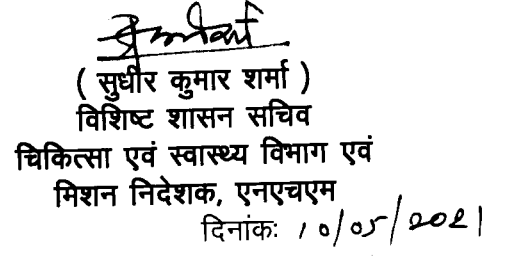 ( सुधीर कुमार शर्मा )
विशिष्ट शासन सचिव
चिकित्सा एवं स्वास्थ्य विभाग एवं
मिशन निदेशक, एनएचएम
दिनांकः 10/05/2021